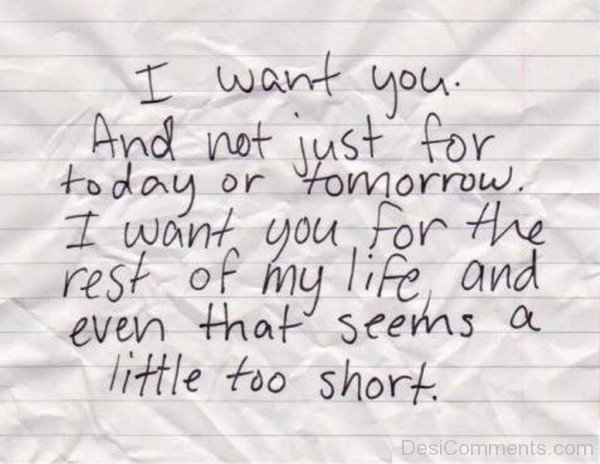 I want you.
And not just for
today or tomorrow.
I want you for the
rest of my life, and
even that seems a
little too short.
DesiComments.com